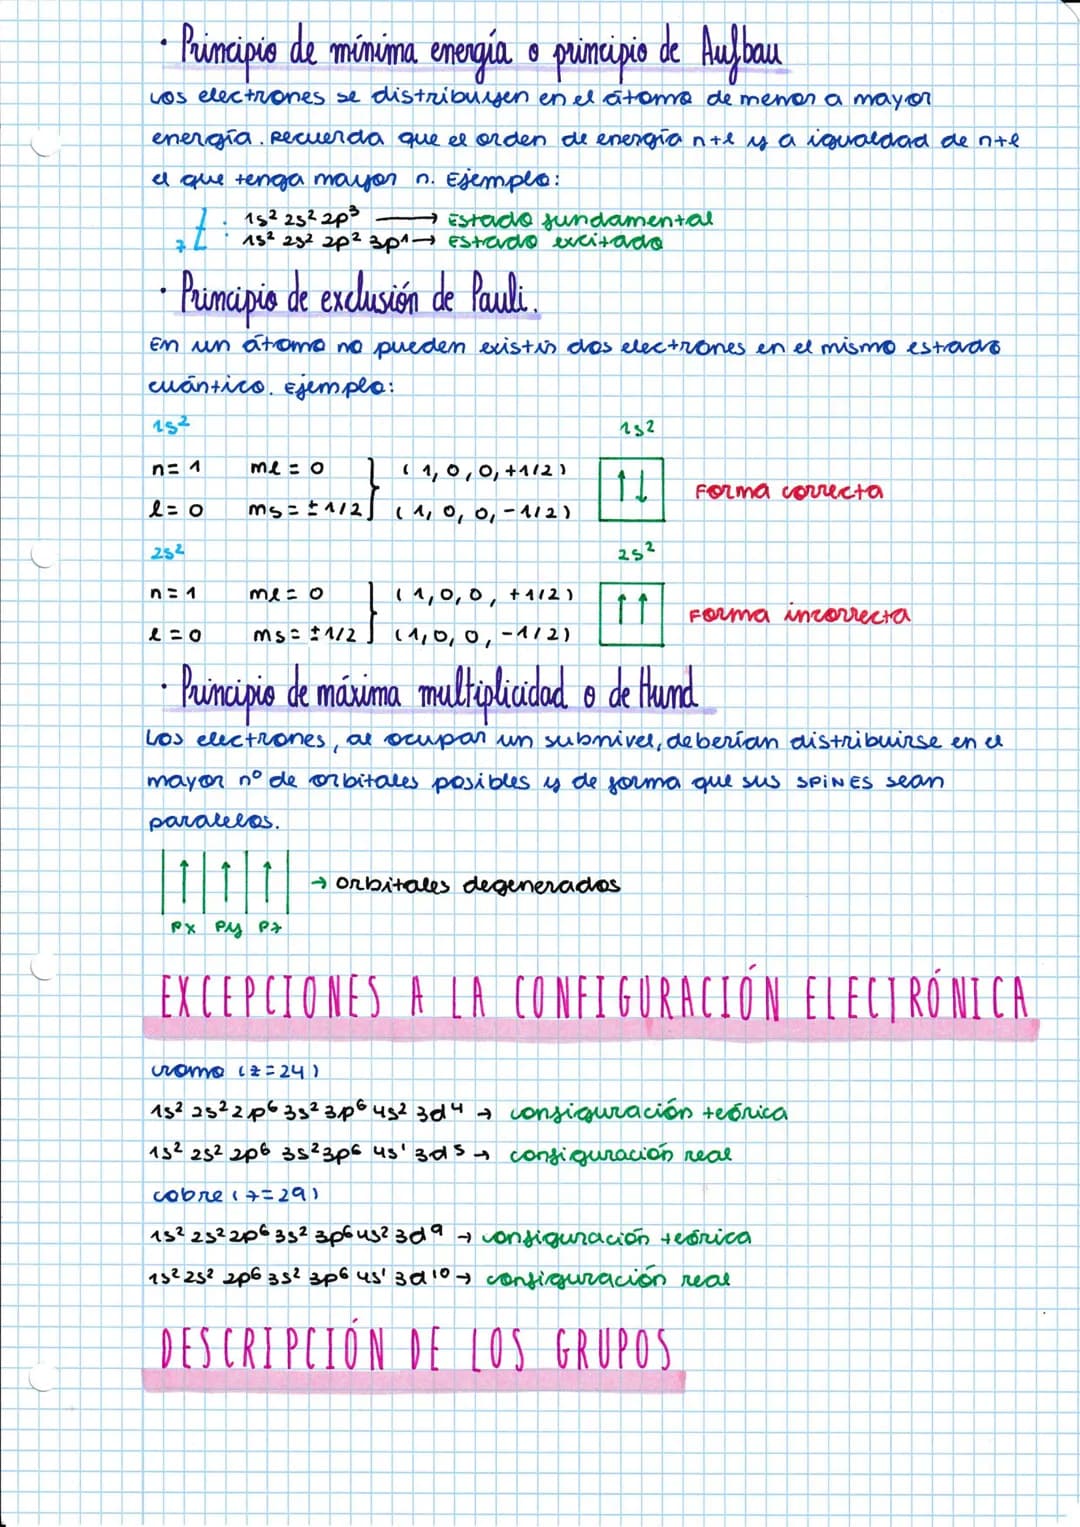 · Principio de mínima energía o principio de Aufbau
Los electrones se distribuyen en el átomo de menor a mayor
energía. Recuerda que el orden de energía n+l y a igualdad de n+l
el que tenga mayor n. Ejemplo:
7Z : 1s² 2s² 2p³ → Estado fundamental
1s² 2s² 2p² 3p¹ → Estado excitado
· Principio de exclusión de Pauli.
En un átomo no pueden existir dos electrones en el mismo estado
cuántico. Ejemplo:
1s² 1s²
n= 1 ml = 0 (1,0,0,+1/2) ↑↓ Forma correcta
l= 0 ms= ±1/2 (1,0,0,-1/2)
2s² 2s²
n= 1 ml= 0 (1,0,0, +1/2) ↑↑ Forma incorrecta
l = 0 ms= ±1/2 (1,0,0,-1/2)
· Principio de máxima multiplicidad o de Hund
Los electrones, al ocupar un subnivel, deberían distribuirse en el
mayor nº de orbitales posibles y de forma que sus SPINES sean
paralelos.
↑ ↑ ↑ → orbitales degenerados
Px Py Pz
EXCEPCIONES A LA CONFIGURACIÓN ELECTRÓNICA
cromo (z=24)
1s² 2s² 2p⁶ 3s² 3p⁶ 4s² 3d⁴ → configuración teórica
1s² 2s² 2p⁶ 3s² 3p⁶ 4s¹ 3d⁵ → configuración real
cobre (z=29)
1s² 2s² 2p⁶ 3s² 3p⁶ 4s² 3d⁹ → configuración teórica
1s² 2s² 2p⁶ 3s² 3p⁶ 4s¹ 3d¹⁰ → configuración real
DESCRIPCIÓN DE LOS GRUPOS